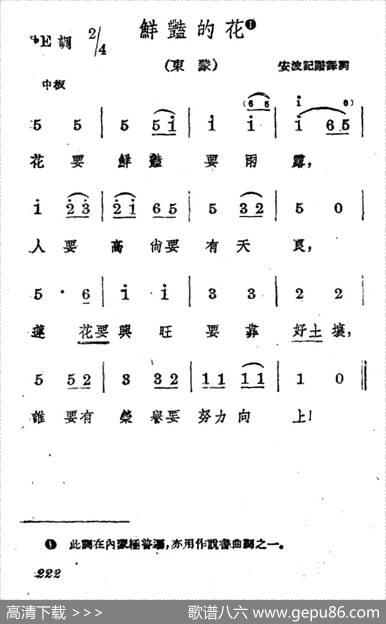 鮮豔的花❶
♭E 調 2/4
（東蒙） 安波記譜譯詞
中板
(6 5 i 0)
5 5 | 5 5 i | i i | i 6 5 |
花 要 鮮 豔 要 雨 露，
i 2 3 | 2 i 6 5 | 5 3 2 | 5 0 |
人 要 高 尙 要 有 天 良，
5 · 6 | i i | 3 3 | 2 2 |
蓮 花 要 興 旺 要 靠 好 土 壤，
5 5 2 | 3 3 2 | 1 1 1 1 | 1 0 ‖
誰 要 有 榮 譽 要 努 力 向 上！
❶ 此調在內蒙極普遍，亦用作說書曲調之一。
222
高清下载 >>> 歌谱八六 www.gepu86.com